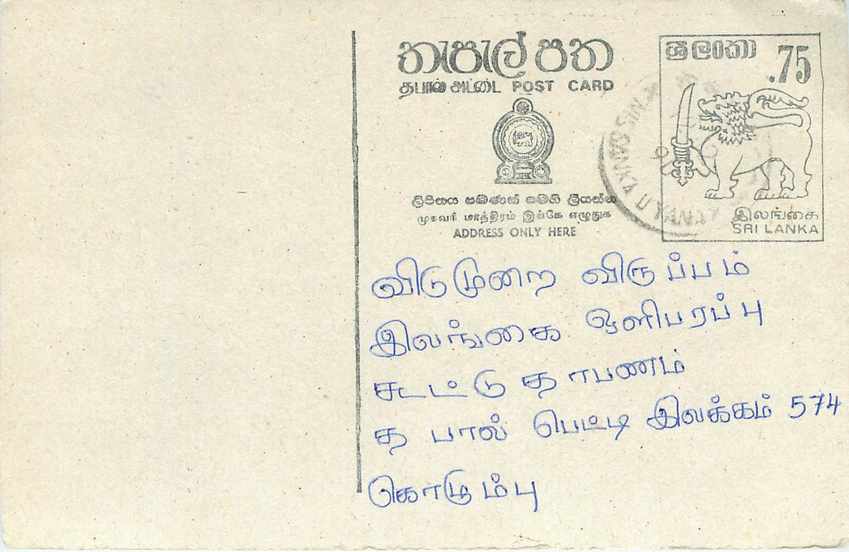 තැපැල් පත
தபால் அட்டை POST CARD
ලිපිනය පමණක් මෙහි ලියන්න
முகவரி மாத்திரம் இங்கே எழுதுக
ADDRESS ONLY HERE
ශ්‍රී ලංකා
.75
இலங்கை
SRI LANKA
விடுமுறை விருப்பம்
இலங்கை ஒளிபரப்பு
கூட்டுதாபனம்
தபால் பெட்டி இலக்கம் 574
கொழும்பு